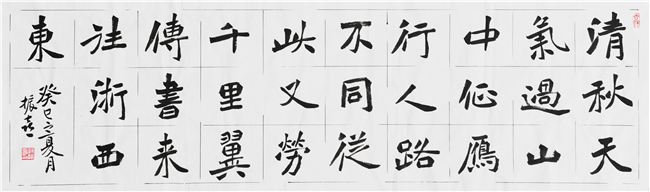 清秋天
氣過山
中征鴈
行人路
不同從
此又勞
千里翼
傳書来
往浙西
東
癸巳之夏月
振喜